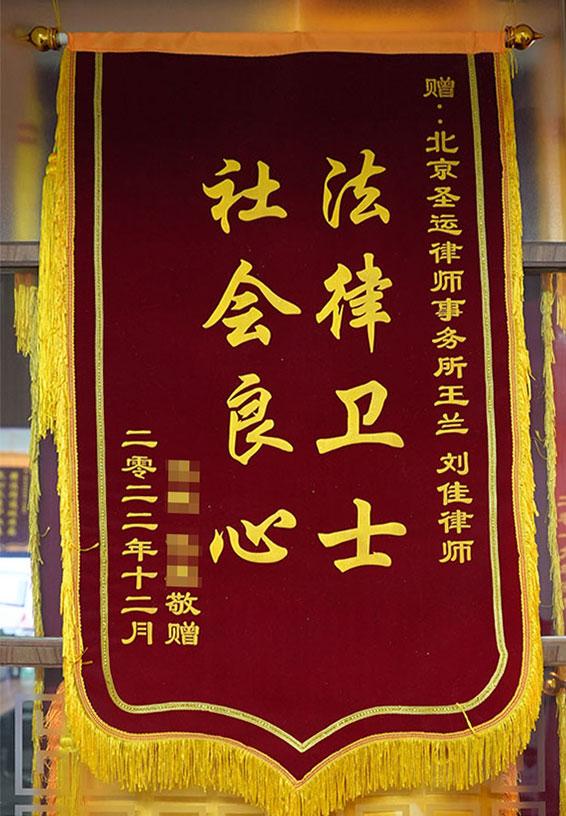 赠：北京圣运律师事务所王兰 刘佳律师
法律卫士
社会良心
敬赠
二零二二年十二月